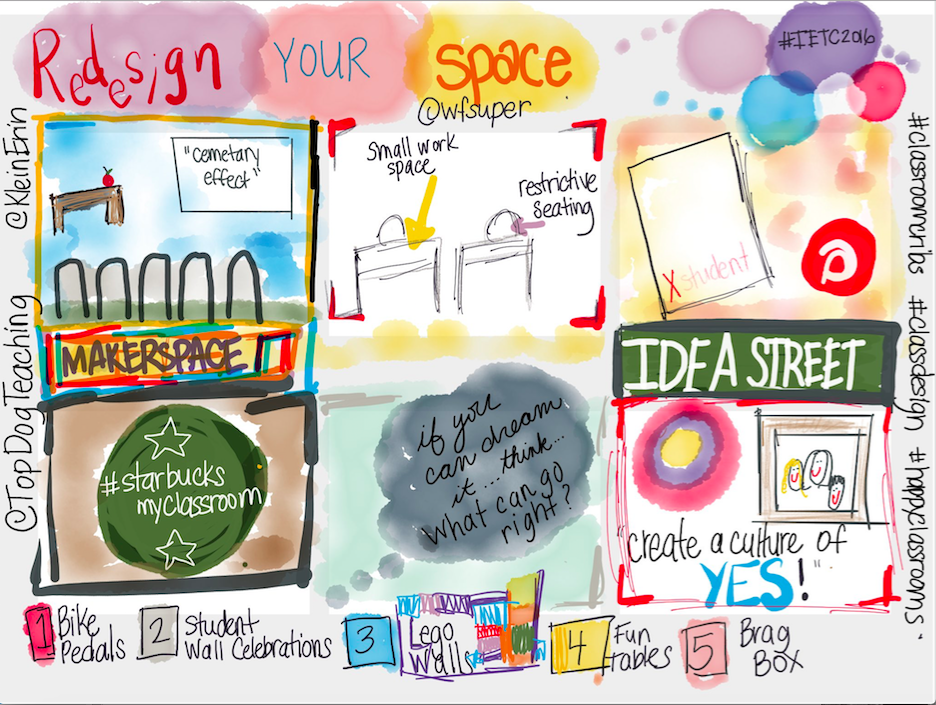 Redesign YOUR space
#IETC2016
@wfsuper
@KleinErin
@TopDogTeaching
"cemetary
effect"
Small work
space
restrictive
seating
X student
#classroomcribs #classdesign #happyclassrooms
MAKERSPACE
IDEA STREET
#starbucks
myclassroom
if you
can dream
it.... think...
what can go
right?
"create a culture of
YES!"
1 Bike
Pedals
2 Student
Wall Celebrations
3 Lego
Walls
4 Fun
tables
5 Brag
BOX